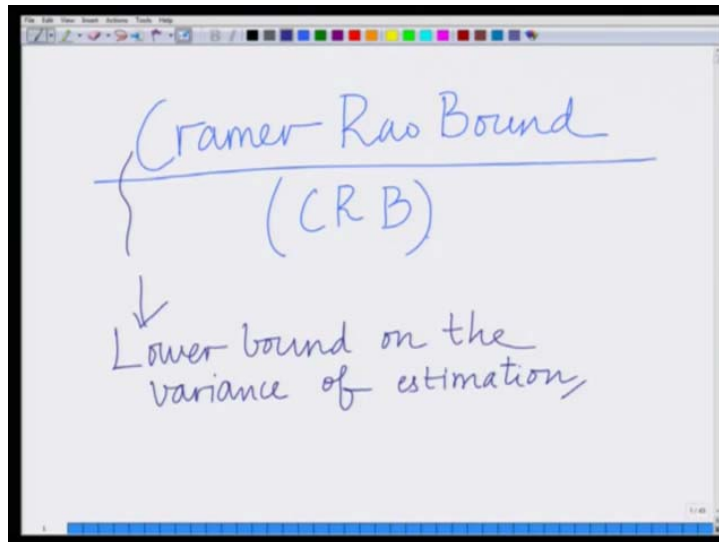 File Edit View Insert Actions Tools Help
Cramer Rao Bound
(CRB)
Lower bound on the
variance of estimation,
1
1/45